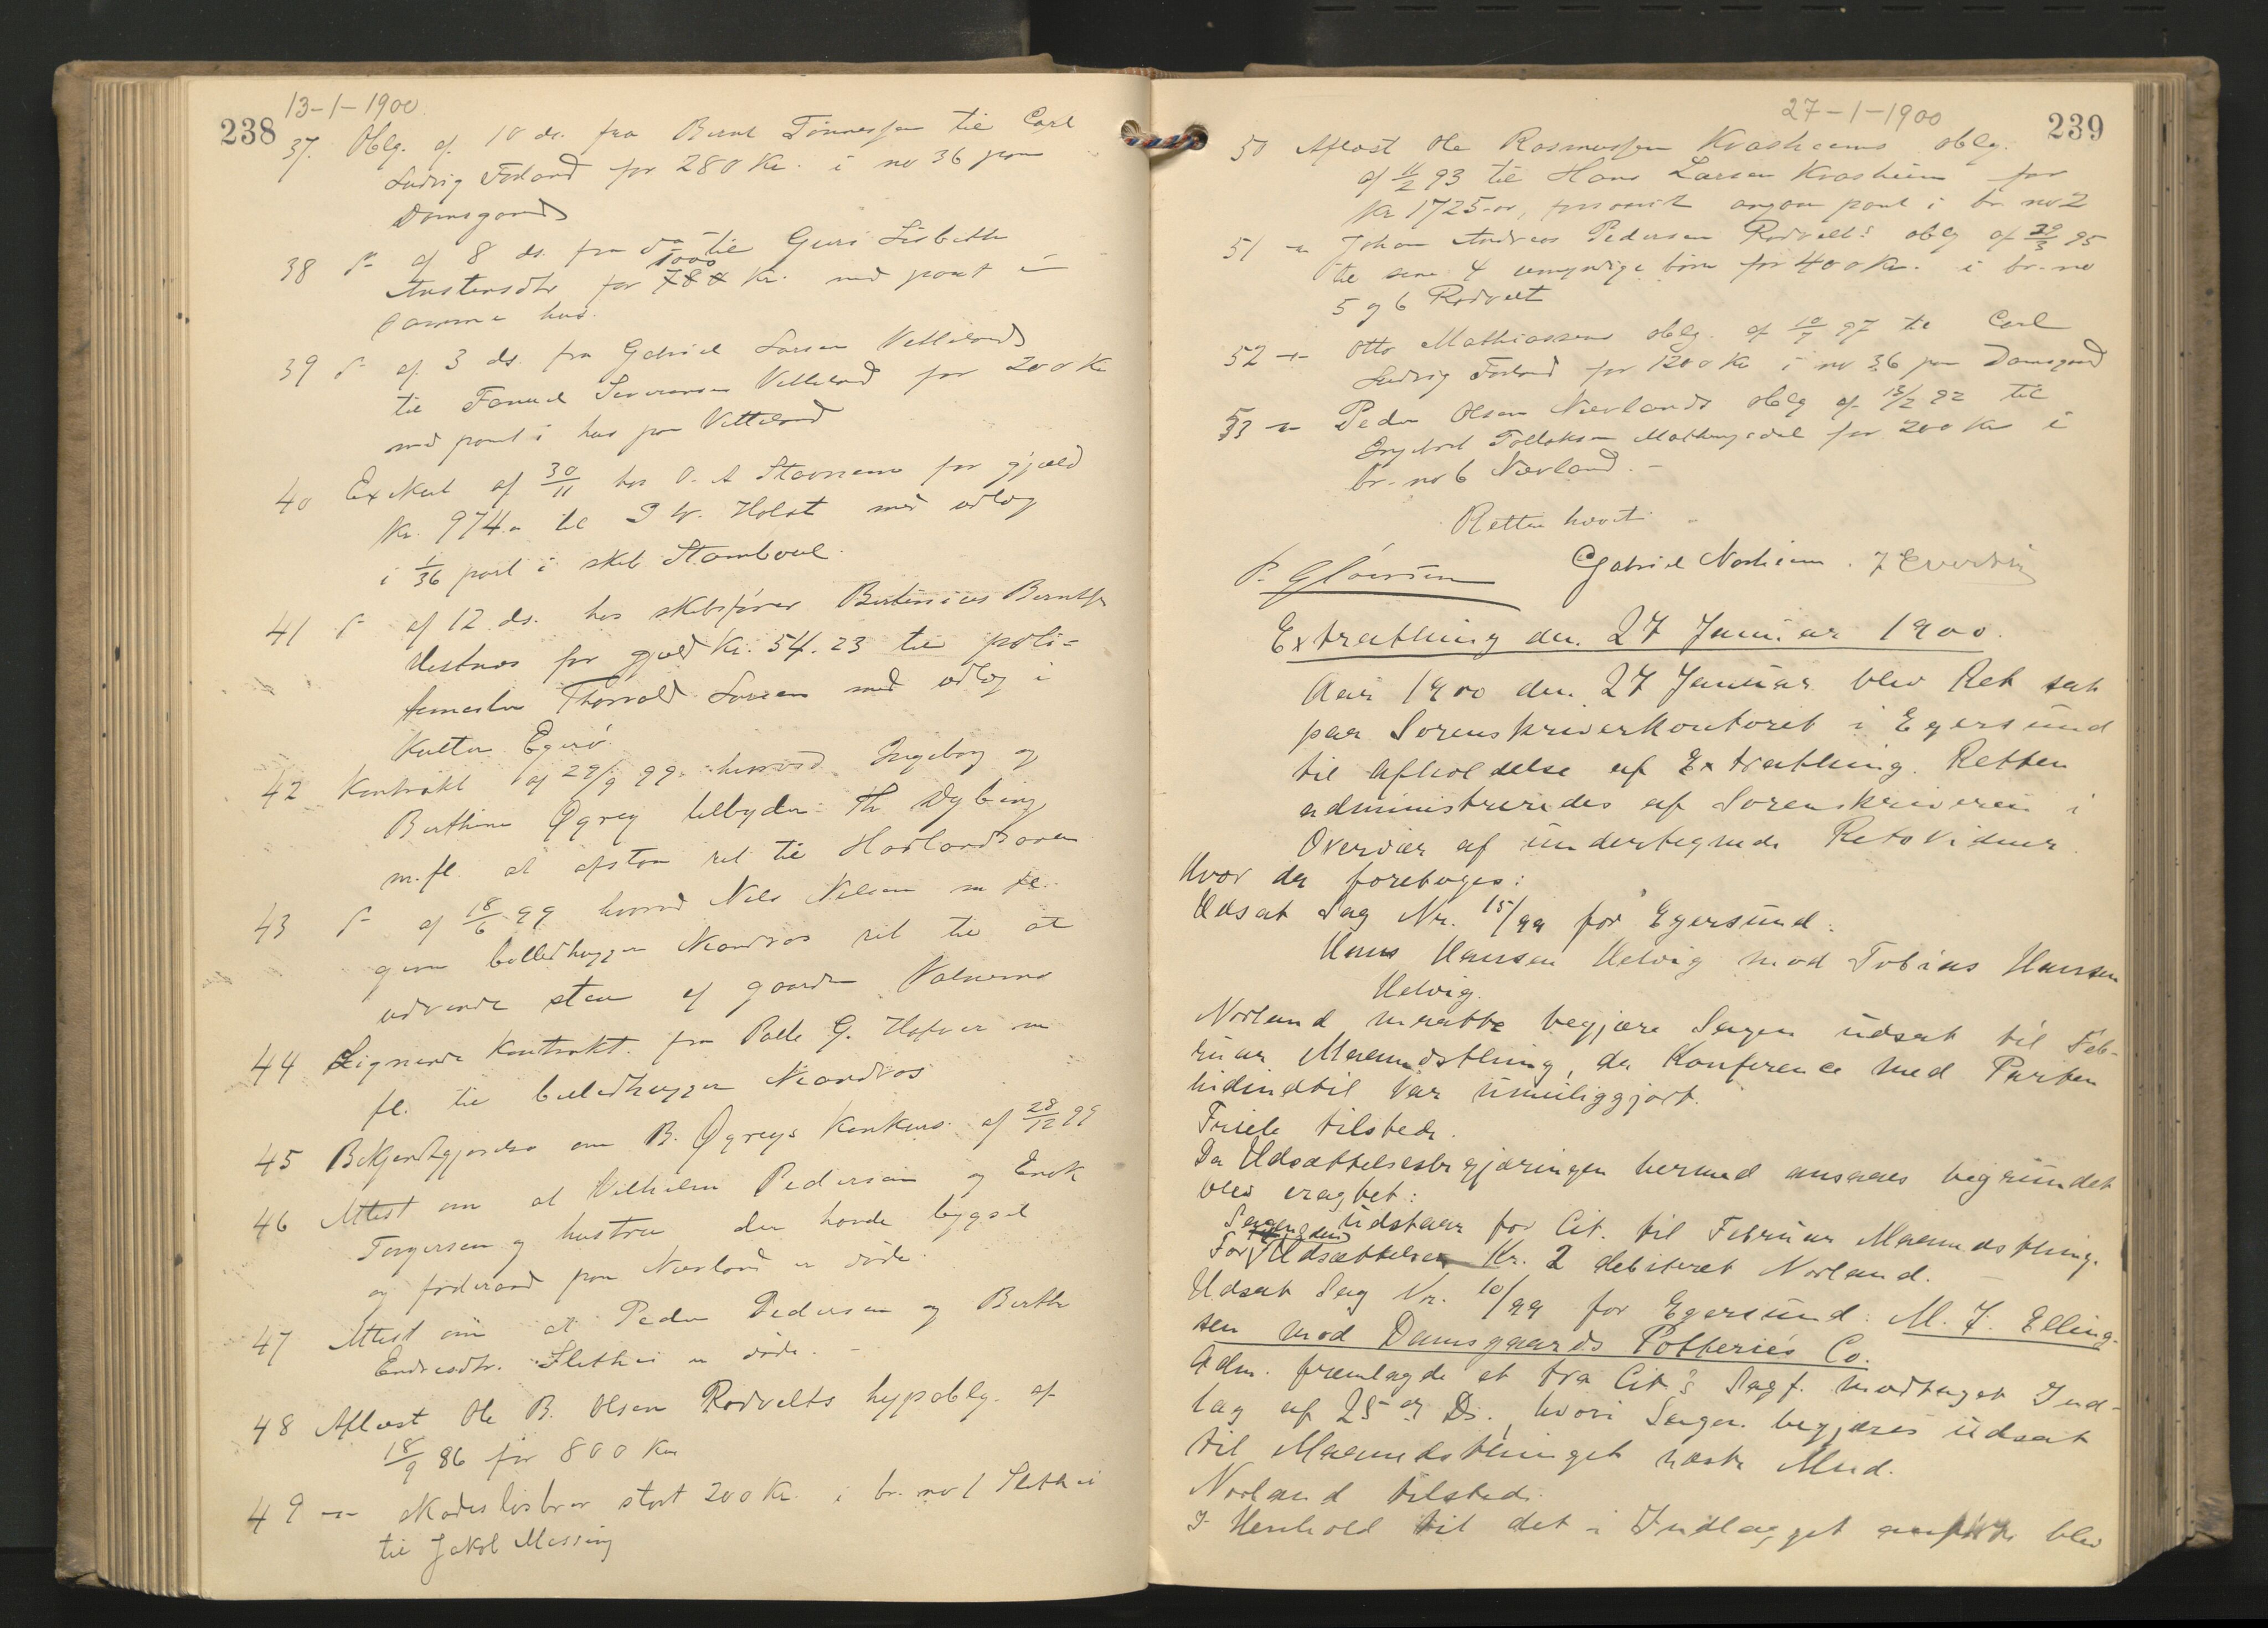 13-1-1900
238
37. Oblg. af 10 ds. fra Bernt Tønnessen til Carl
Ludvig Forland for 280 Kr. i no 36 paa
Damsgaard
38 af 8 ds. fra til Guri Lisbeth
1000
Austensdtr for Kr. med pant i
samme hus.
39 af 3 ds. fra Gabriel Larsen Vetteland
til Severinsen Vetteland for 200 Kr
med pant i hus paa Vetteland
40 af 30/11 hos O. A for gjæld
Kr. 974.- til Holst med udlæg
i 1/36 part i skib Stamboul.
41 af 12 ds. hos skibsfører Berntsen
for gjæld Kr. 54.23 til poli-
Thorvald Larsen med udlæg i
Kutter Egerø.
42 Kontrakt af 29/9 99. hvorved Ingeborg og
Berthine Øgrey tilbyder Th Dybing
m.fl. at afstaa ret til
43 af 18/6 99 hvorved Nils Nilsen m fl.
billedhugger ret til at
sten af gaarden
44 Lignende Kontrakt fra G. m
fl. til billedhugger
45 Bekjendtgjørelse om B. Øgreys Konkurs af 28/12 99
46 Attest om at Vilhelm Pedersen og
Torgersen og hustru der havde bygsel
og føderaad paa Nævland er døde.
47 Attest om at Peder Pedersen og Berthe
Endresdtr. Slethei er døde. -
48 Aflæst Ole B. Olsen Rødvelts hypoblg. af
18/9 86 for 800 Kr
49 -"- skadesløsbrev stort 200 Kr. i br. no 1 Slethei
til Jakob Messing
27-1-1900
239
50 Aflæst Ole Rasmussen Kvasheims oblg.
af 11/2 93 til Hans Larsen Kvasheim for
Kr 1725.00, forsaavidt angaar pant i br no 2
51 -"- Johan Andreas Pedersen Rødvelts oblg af 29/3 95
til sine 4 umyndige børn for 400 Kr. i br. no
5 og 6 Rødvelt
52 -"- Otto Mathiassens oblg. af 10/7 97 til Carl
Ludvig Forland for 1200 Kr i no 36 paa Damsgaard
53 -"- Peder Olsen Nævlands oblg af 13/2 92 til
Tollaksen for 200 Kr i
br. no 6 Nævland. -
Retten hævet
Gabriel
Extrathing den 27 Januar 1900.
Aar 1900 den 27 Januar blev Ret sat
paa Sorenskriverkontoret i Egersund
til Afholdelse af Extrathing. Retten
administreredes af Sorenskriveren i
Overvær af undertegnede Retsvidner.
Hvor da foretoges:
Udsat Sag Nr. 15/99 for Egersund:
Hans Hansen Helvig mod Tobias Hansen
Helvig.
Norland maatte begjære Sagen udsat til Feb-
ruar Maanedsthing, da Konference med Parten
hidindtil var umuliggjort.
Friele tilstede.
Da Udsættelsesbegjæringen hermed ansaaes begrundet
blev eragtet:
Sagen udstaar for Cit. til Februar Maanedsthing.
For Udsættelsen Kr. 2 debiteret Norland.
Udsat Sag Nr. 10/99 for Egersund: M. J. Elling-
sen mod Damsgaards Potteries Co.
Adm. fremlagde et fra Cit's Sagf. modtaget Ind-
læg af 25 ds., hvori Sagen begjæres udsat
til Maanedsthinget næste Mnd.
Norland tilstede.
I Henhold til det i Indlægget anførte blev